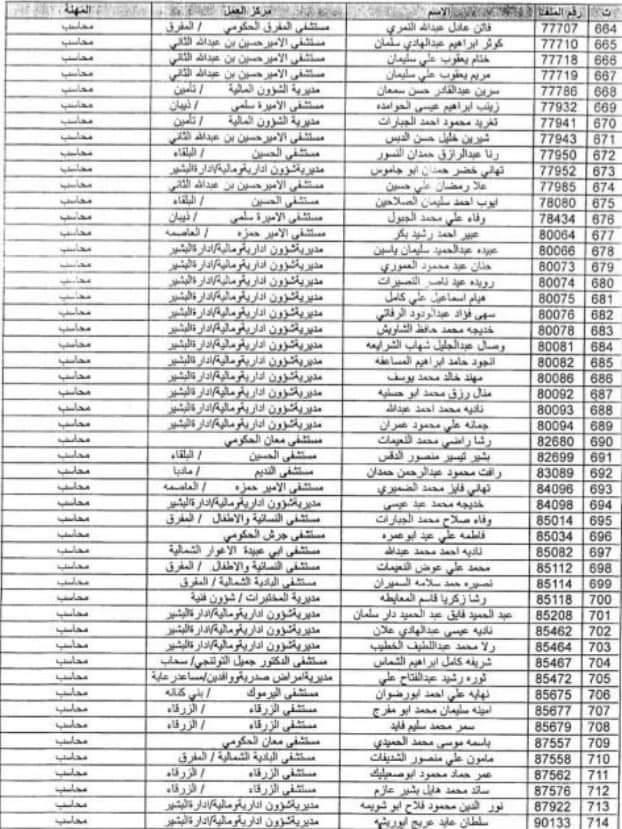 ت رقم الملف الاسم مركز العمل المهنة
664 77707 فاتن عادل عبدالله النمري مستشفى المفرق الحكومي / المفرق محاسب
665 77710 كوثر ابراهيم عبدالهادي سلمان مستشفى الاميرحسين بن عبدالله الثاني محاسب
666 77718 ختام يعقوب علي سليمان مستشفى الاميرحسين بن عبدالله الثاني محاسب
667 77719 مريم يعقوب علي سليمان مستشفى الاميرحسين بن عبدالله الثاني محاسب
668 77786 سرين عبدالقادر حسن سمعان مديرية الشؤون المالية / تأمين محاسب
669 77932 زينب ابراهيم عيسى الحوامده مستشفى الاميرة سلمى / ذيبان محاسب
670 77941 تغريد محمود احمد الجبارات مديرية الشؤون المالية / تأمين محاسب
671 77943 شيرين خليل حسن الدبس مستشفى الاميرحسين بن عبدالله الثاني محاسب
672 77950 رنا عبدالرازق حمدان النسور مستشفى الحسين / البلقاء محاسب
673 77952 تهاني خضر حمدان ابو جاموس مديريةشؤون اداريةومالية/ادارةالبشير محاسب
674 77985 علا رمضان علي حسين مستشفى الاميرحسين بن عبدالله الثاني محاسب
675 78080 ايوب احمد سليمان الصلاحين مستشفى الحسين / البلقاء محاسب
676 78434 وفاء علي محمد الجبول مستشفى الاميرة سلمى / ذيبان محاسب
677 80064 عبير احمد رشيد بكر مستشفى الامير حمزه / العاصمه محاسب
678 80066 عبيده عبدالحميد سليمان ياسين مديريةشؤون اداريةومالية/ادارةالبشير محاسب
679 80073 حنان عبد محمود العموري مديريةشؤون اداريةومالية/ادارةالبشير محاسب
680 80074 رويده عيد ناصر النصيرات مديريةشؤون اداريةومالية/ادارةالبشير محاسب
681 80075 هيام اسماعيل علي كامل مديريةشؤون اداريةومالية/ادارةالبشير محاسب
682 80076 سهى فؤاد عبدالودود الرفاتي مديريةشؤون اداريةومالية/ادارةالبشير محاسب
683 80078 خديجه محمد حافظ الشاويش مديريةشؤون اداريةومالية/ادارةالبشير محاسب
684 80081 وصال عبدالجليل شهاب الشرايعه مديريةشؤون اداريةومالية/ادارةالبشير محاسب
685 80082 انجود حامد ابراهيم المساعفه مديريةشؤون اداريةومالية/ادارةالبشير محاسب
686 80086 مهند خالد محمد يوسف مديريةشؤون اداريةومالية/ادارةالبشير محاسب
687 80092 منال رزق محمد ابو حسنيه مديريةشؤون اداريةومالية/ادارةالبشير محاسب
688 80093 ناديه محمد احمد عبدالله مديريةشؤون اداريةومالية/ادارةالبشير محاسب
689 80094 جمانه علي محمود عمران مديريةشؤون اداريةومالية/ادارةالبشير محاسب
690 82680 رشا راضي محمد النعيمات مستشفى معان الحكومي محاسب
691 82699 بشير تيسير منصور الدقس مستشفى الحسين / البلقاء محاسب
692 83089 رافت محمود عبدالرحمن حمدان مستشفى النديم / مادبا محاسب
693 84096 تهاني فايز محمد الضميري مستشفى الامير حمزه / العاصمه محاسب
694 84098 خديجه محمد عبد عيسى مديريةشؤون اداريةومالية/ادارةالبشير محاسب
695 85014 وفاء صلاح محمد الجبارات مستشفى النسائية والاطفال / المفرق محاسب
696 85034 فاطمه علي عيد ابوعمره مستشفى جرش الحكومي محاسب
697 85082 ناديه احمد محمد عبدالله مستشفى ابي عبيدة الاغوار الشمالية محاسب
698 85112 محمد علي عوض النعيمات مستشفى النسائية والاطفال / المفرق محاسب
699 85114 نصيره حمد سلامه السميران مستشفى البادية الشمالية / المفرق محاسب
700 85118 رشا زكريا قاسم المعايطه مديرية المختبرات / شؤون فنية محاسب
701 85208 عبد الحميد فايق عبد الحميد دار سلمان مديريةشؤون اداريةومالية/ادارةالبشير محاسب
702 85462 ناديه عيسى عبدالهادي علان مديريةشؤون اداريةومالية/ادارةالبشير محاسب
703 85464 رلا محمد عبداللطيف الخطيب مديريةشؤون اداريةومالية/ادارةالبشير محاسب
704 85467 شريفه كامل ابراهيم الشماس مستشفى الدكتور جميل التوتنجي/ سحاب محاسب
705 85472 ثوره رشيد عبدالفتاح علي مديريةامراض صدريةووافدين/مساعدرعاية محاسب
706 85675 نهايه علي احمد ابورضوان مستشفى اليرموك / بني كنانه محاسب
707 85677 امينه سليمان محمد ابو مفرح مستشفى الزرقاء / الزرقاء محاسب
708 85679 سمر محمد سليم فايد مستشفى الزرقاء / الزرقاء محاسب
709 87557 باسمه موسى محمد الحميدي مستشفى معان الحكومي محاسب
710 87558 مامون علي منصور الشديفات مستشفى البادية الشمالية / المفرق محاسب
711 87562 عمر حماد محمود ابوصعيليك مستشفى الزرقاء / الزرقاء محاسب
712 87576 سائد محمد هايل بشير عازم مستشفى الزرقاء / الزرقاء محاسب
713 87922 نور الدين محمود فلاح ابو شويمه مديريةشؤون اداريةومالية/ادارةالبشير محاسب
714 90133 سلطان عايد عريج ابوربشه مديريةشؤون اداريةومالية/ادارةالبشير محاسب